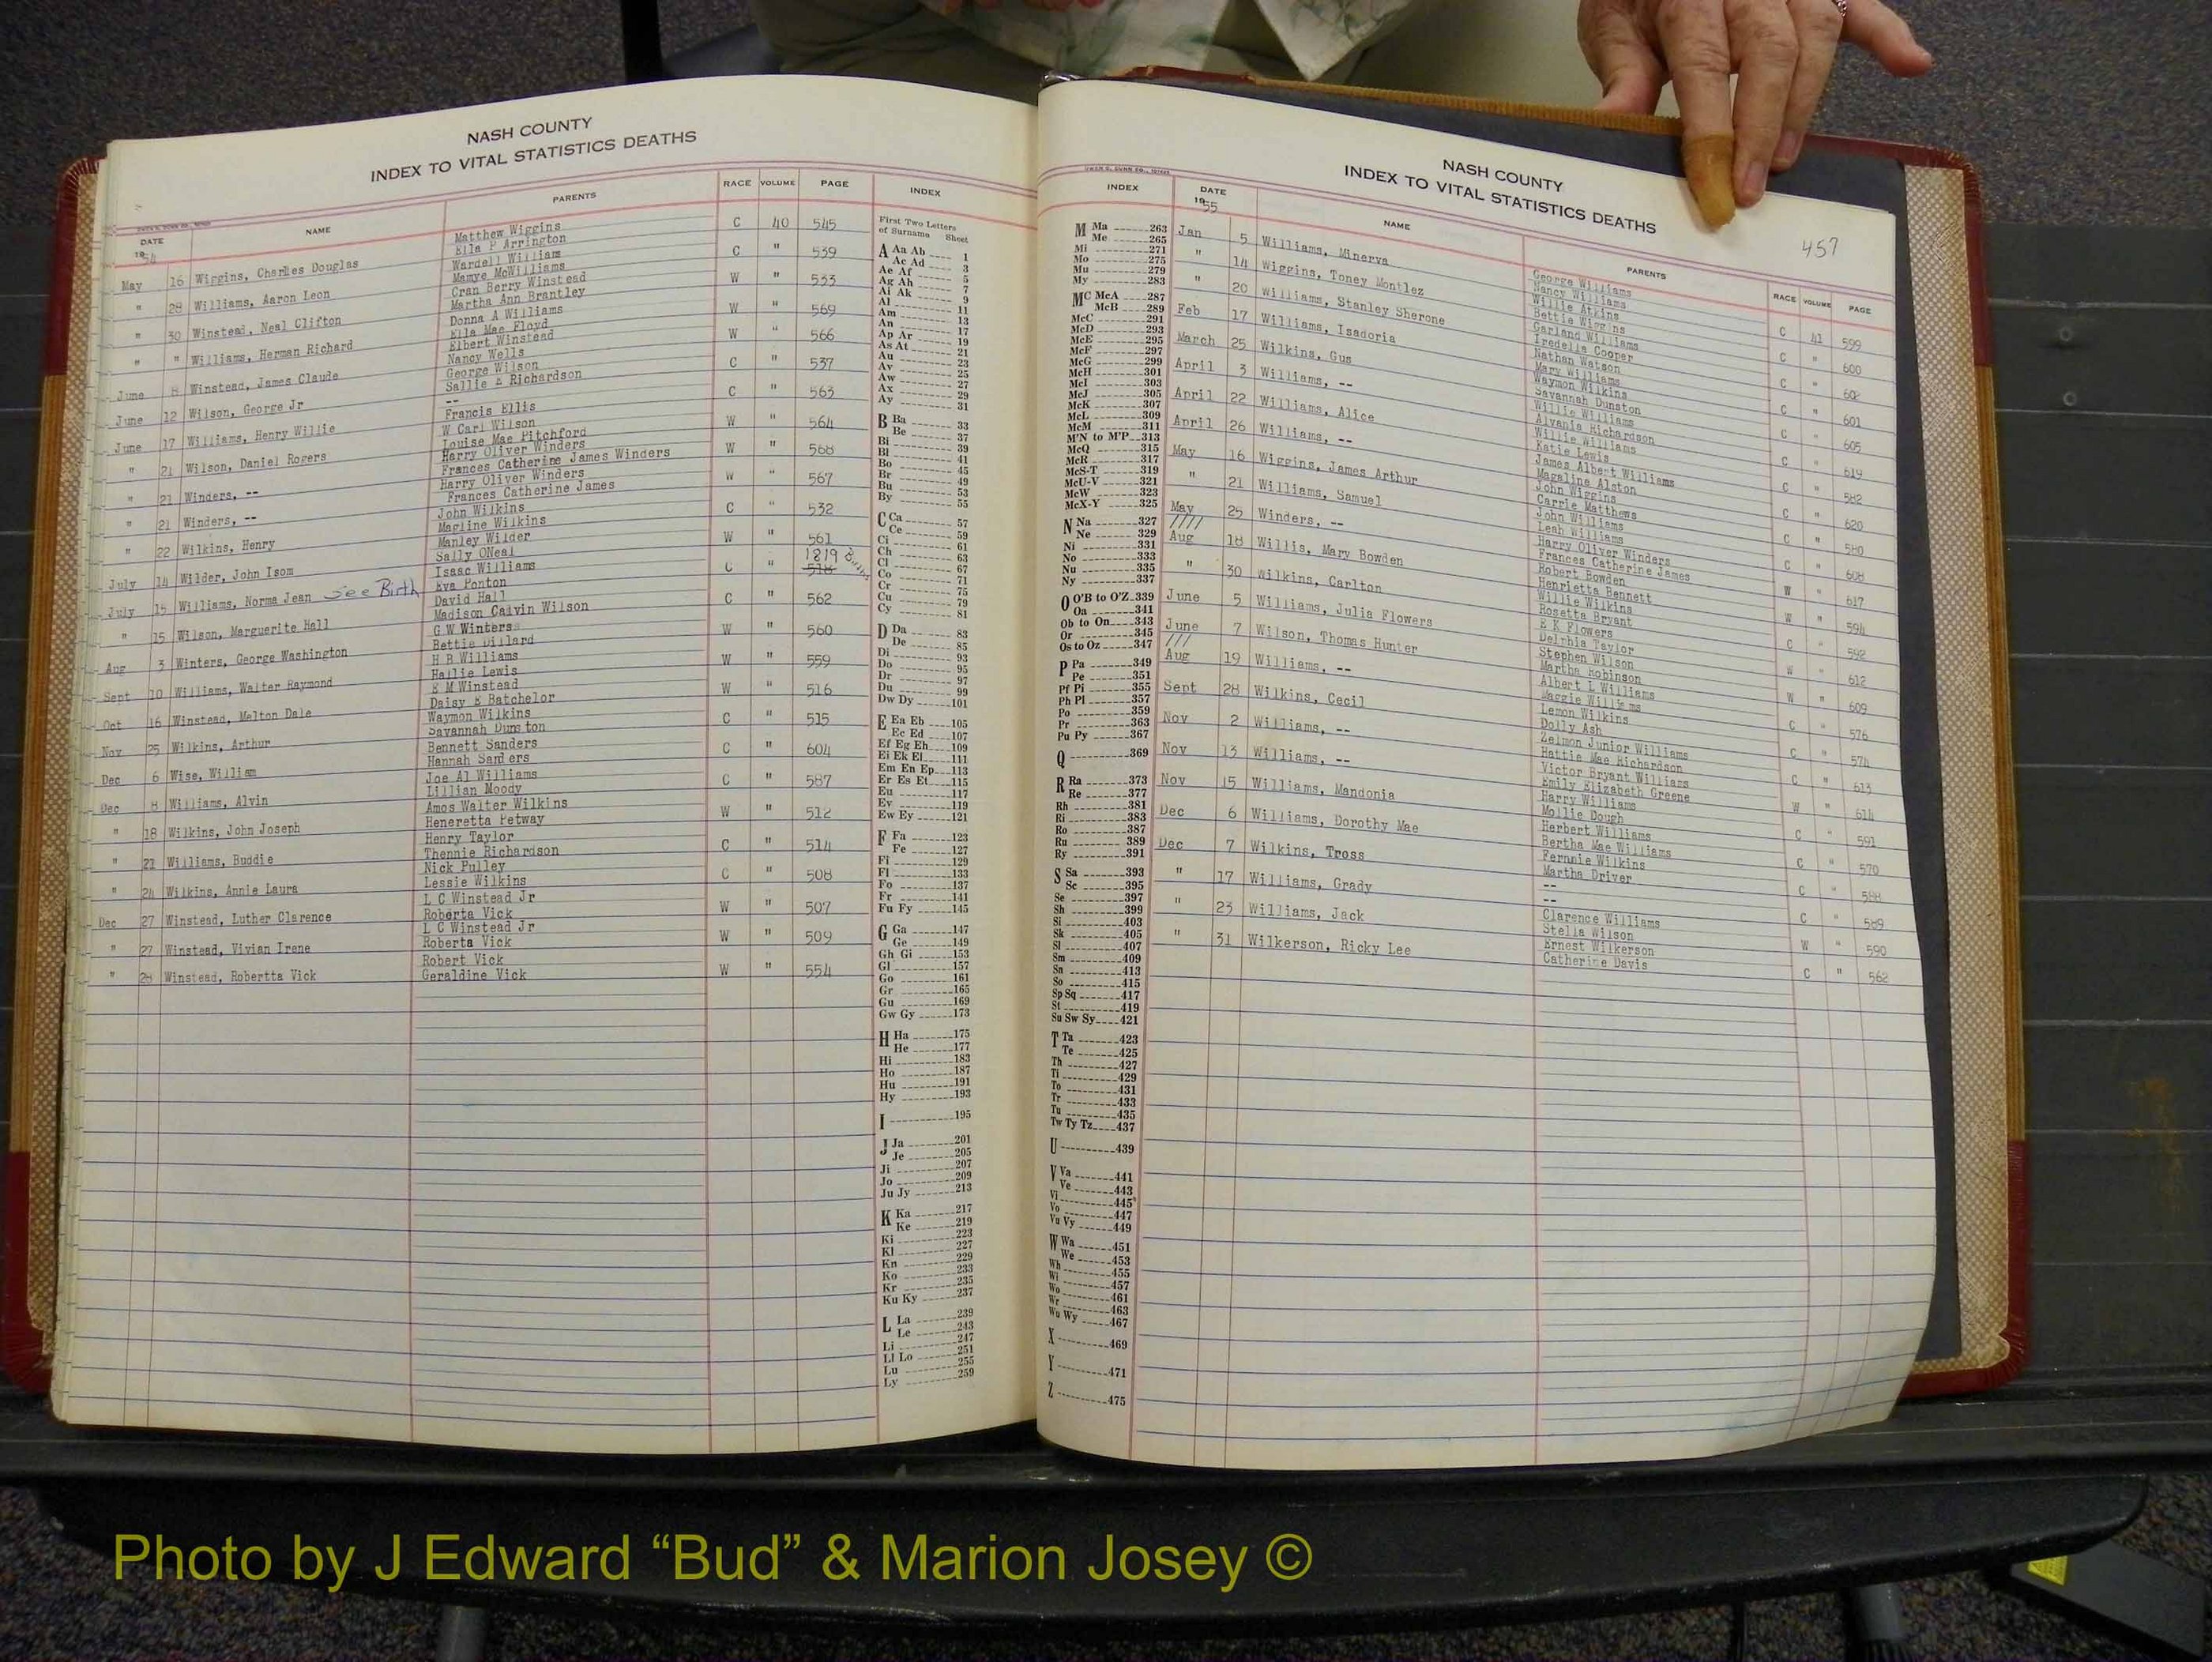 NASH COUNTY
INDEX TO VITAL STATISTICS DEATHS
DATE NAME PARENTS RACE VOLUME PAGE INDEX
1954
May 16 Wiggins, Charles Douglas Matthew Wiggins C 40 545
Ella P Arrington
" 28 Williams, Aaron Leon Wardell William C " 539
Mamye McWilliams
" 30 Winstead, Neal Clifton Cran Berry Winstead W " 533
Martha Ann Brantley
" " Williams, Herman Richard Donna A Williams W " 569
Ella Mae Floyd
June 8 Winstead, James Claude Elbert Winstead W " 566
Nancy Wells
June 12 Wilson, George Jr George Wilson C " 537
Sallie E Richardson
June 17 Williams, Henry Willie -- C " 563
Francis Ellis
" 21 Wilson, Daniel Rogers W Carl Wilson W " 564
Louise Mae Pitchford
" 21 Winders, -- Harry Oliver Winders W " 568
Frances Catherine James Winders
" 21 Winders, -- Harry Oliver Winders W " 567
Frances Catherine James
" 22 Wilkins, Henry John Wilkins C " 532
Magline Wilkins
July 14 Wilder, John Isom Manley Wilder W " 561
Sally ONeal
July 15 Williams, Norma Jean See Birth Isaac Williams C " 518 1219
Eva Ponton
" 15 Wilson, Marguerite Hall David Hall C " 562
Madison Calvin Wilson
Aug 3 Winters, George Washington G W Winters W " 560
Bettie Dillard
Sept 10 Williams, Walter Raymond H B Williams W " 559
Hallie Lewis
Oct 16 Winstead, Melton Dale E M Winstead W " 516
Daisy E Batchelor
Nov 25 Wilkins, Arthur Waymon Wilkins C " 515
Savannah Dunston
Dec 6 Wise, William Bennett Sanders C " 604
Hannah Sanders
Dec 8 Williams, Alvin Joe Al Williams C " 587
Lillian Moody
" 18 Wilkins, John Joseph Amos Walter Wilkins W " 512
Heneretta Petway
" 22 Williams, Buddie Henry Taylor C " 514
Thennie Richardson
" 24 Wilkins, Annie Laura Nick Pulley C " 508
Lessie Wilkins
Dec 27 Winstead, Luther Clarence L C Winstead Jr W " 507
Roberta Vick
" 27 Winstead, Vivian Irene L C Winstead Jr W " 509
Roberta Vick
" 28 Winstead, Robertta Vick Robert Vick W " 554
Geraldine Vick
First Two Letters
of Surname Sheet
A Aa Ab 1
Ac Ad 3
Ae Af 5
Ag Ah 7
Ai Ak 9
Al 11
Am 13
An 17
Ap Ar 19
As At 21
Au 23
Av 25
Aw 27
Ax 29
Ay 31
B Ba 33
Be 37
Bi 39
Bl 41
Bo 45
Br 49
Bu 53
By 55
C Ca 57
Ce 59
Ci 61
Ch 63
Cl 67
Co 71
Cr 75
Cu 79
Cy 81
D Da 83
De 85
Di 93
Do 95
Dr 97
Du 99
Dw Dy 101
E Ea Eb 105
Ec Ed 107
Ef Eg Eh 109
Ei Ek El 111
Em En Ep 113
Er Es Et 115
Eu 117
Ev 119
Ew Ey 121
F Fa 123
Fe 127
Fi 129
Fl 133
Fo 137
Fr 141
Fu Fy 145
G Ga 147
Ge 149
Gh Gi 153
Gl 157
Go 161
Gr 165
Gu 169
Gw Gy 173
H Ha 175
He 177
Hi 183
Ho 187
Hu 191
Hy 193
I 195
J Ja 201
Je 205
Ji 207
Jo 209
Ju Jy 213
K Ka 217
Ke 219
Ki 223
Kl 227
Kn 229
Ko 233
Kr 235
Ku Ky 237
L La 239
Le 243
Li 247
Ll Lo 251
Lu 255
Ly 259
NASH COUNTY
INDEX TO VITAL STATISTICS DEATHS
457
INDEX DATE NAME PARENTS RACE VOLUME PAGE
M Ma 263
Me 265
Mi 271
Mo 275
Mu 279
My 283
MC McA 287
McB 289
McC 291
McD 293
McE 295
McF 297
McG 299
McH 301
McI 303
McJ 305
McK 307
McL 309
McM 311
M'N to M'P 313
McQ 315
McR 317
McS-T 319
McU-V 321
McW 323
McX-Y 325
N Na 327
Ne 329
Ni 331
No 333
Nu 335
Ny 337
O O'B to O'Z 339
Oa 341
Ob to On 343
Or 345
Os to Oz 347
P Pa 349
Pe 351
Pf Pi 355
Ph Pl 357
Po 359
Pr 363
Pu Py 367
Q 369
R Ra 373
Re 377
Rh 381
Ri 383
Ro 387
Ru 389
Ry 391
S Sa 393
Sc 395
Se 397
Sh 399
Si 403
Sk 405
Sl 407
Sm 409
Sn 413
So 415
Sp Sq 417
St 419
Su Sw Sy 421
T Ta 423
Te 425
Th 427
Ti 429
To 431
Tr 433
Tu 435
Tw Ty Tz 437
U 439
V Va 441
Ve 443
Vi 445
Vo 447
Vu Vy 449
W Wa 451
We 453
Wh 455
Wi 457
Wo 461
Wr 463
Wu Wy 467
X 469
Y 471
Z 475
1955
Jan 5 Williams, Minerva George Williams C 41 599
Nancy Williams
" 14 Wiggins, Toney Montlez Willie Atkins C " 600
Bettie Wiggins
" 20 Williams, Stanley Sherone Garland Williams C " 602
Iredella Cooper
Feb 17 Williams, Isadoria Nathan Watson C " 601
Mary Williams
March 25 Wilkins, Gus Waymon Wilkins C " 605
Savannah Dunston
April 3 Williams, -- Willie Williams C " 619
Alvania Richardson
April 22 Williams, Alice Willie Williams C " 582
Katie Lewis
April 26 Williams, -- James Albert Williams C " 620
Magaline Alston
May 16 Wiggins, James Arthur John Wiggins C " 580
Carrie Matthews
" 21 Williams, Samuel John Williams C " 608
Leah Williams
May 25 Winders, -- Harry Oliver Winders W " 617
Frances Catherine James
Aug 18 Willis, Mary Bowden Robert Bowden W " 594
Henrietta Bennett
" 30 Wilkins, Carlton Willie Wilkins C " 592
Rosetta Bryant
June 5 Williams, Julia Flowers E K Flowers W " 612
Delphia Taylor
June 7 Wilson, Thomas Hunter Stephen Wilson W " 609
Martha Robinson
Aug 19 Williams, -- Albert L Williams C " 576
Maggie Williams
Sept 28 Wilkins, Cecil Lemon Wilkins C " 574
Dolly Ash
Nov 2 Williams, -- Zelmon Junior Williams C " 613
Hattie Mae Richardson
Nov 13 Williams, -- Victor Bryant Williams W " 614
Emily Elizabeth Greene
Nov 15 Williams, Mandonia Harry Williams C " 591
Mollie Dough
Dec 6 Williams, Dorothy Mae Herbert Williams C " 570
Bertha Mae Williams
Dec 7 Wilkins, Tross Fernnie Wilkins C " 588
Martha Driver
" 17 Williams, Grady -- C " 589
--
" 23 Williams, Jack Clarence Williams W " 590
Stella Wilson
" 31 Wilkerson, Ricky Lee Ernest Wilkerson C " 562
Catherine Davis
Photo by J Edward “Bud” & Marion Josey ©